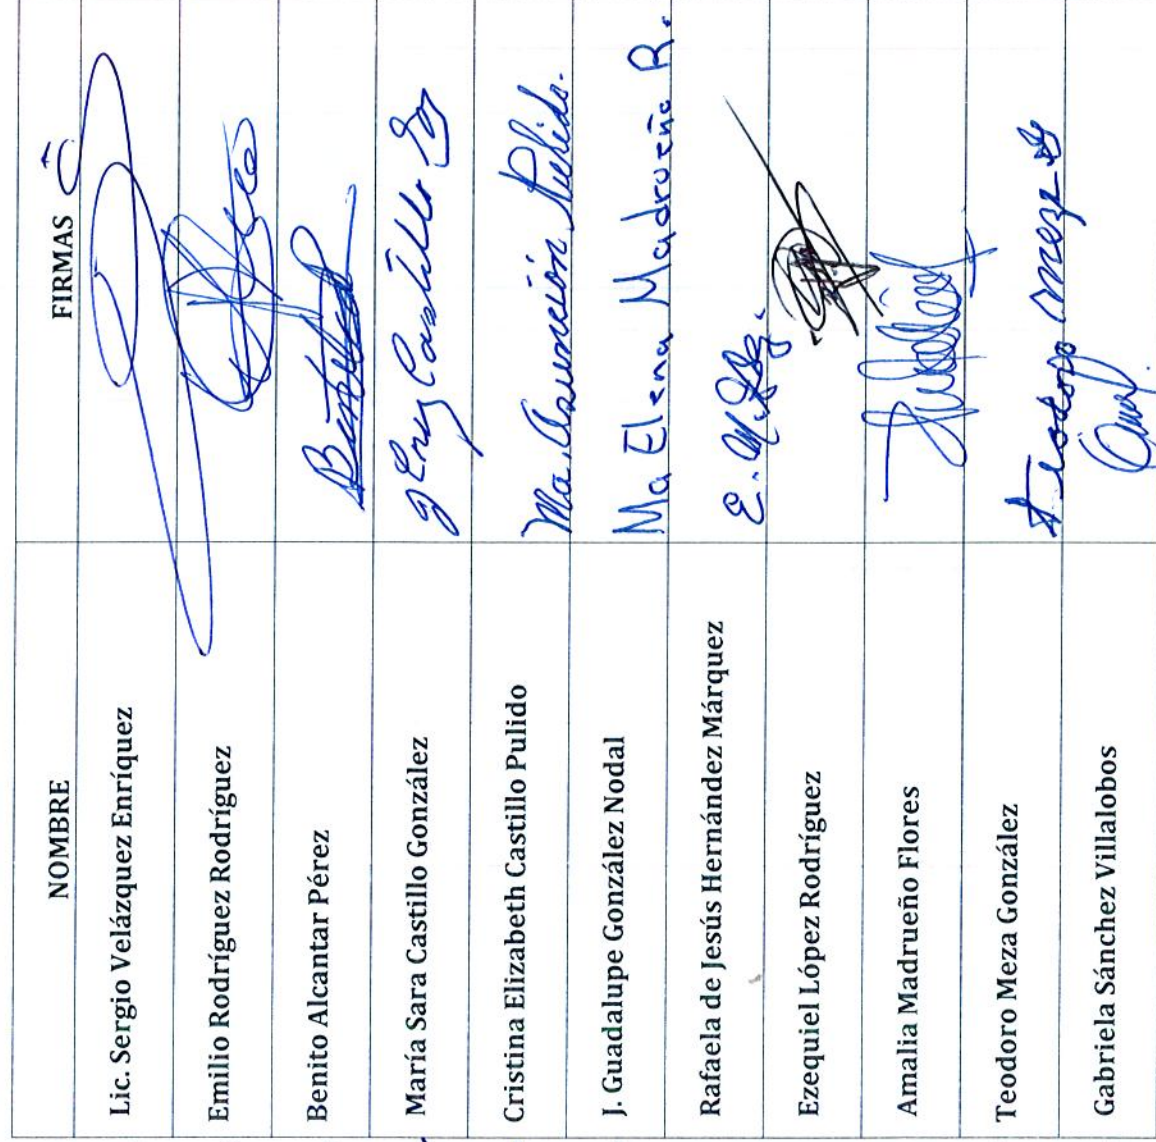 NOMBRE FIRMAS
Lic. Sergio Velázquez Enríquez
Emilio Rodríguez Rodríguez
Benito Alcantar Pérez
María Sara Castillo González J Cruz Castillo
Cristina Elizabeth Castillo Pulido Ma. Asunción Pulido.
J. Guadalupe González Nodal Ma Elena Madrueño R.
Rafaela de Jesús Hernández Márquez E.
Ezequiel López Rodríguez
Amalia Madrueño Flores
Teodoro Meza González Teodoro Meza G
Gabriela Sánchez Villalobos